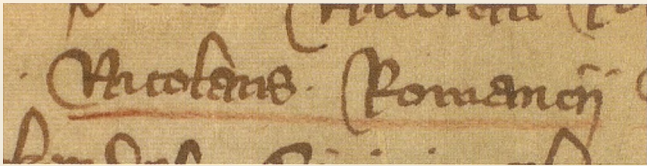 Nicolaus Romancij